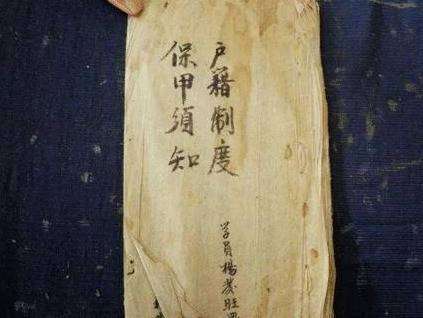 户籍制度
保甲須知
学员楊